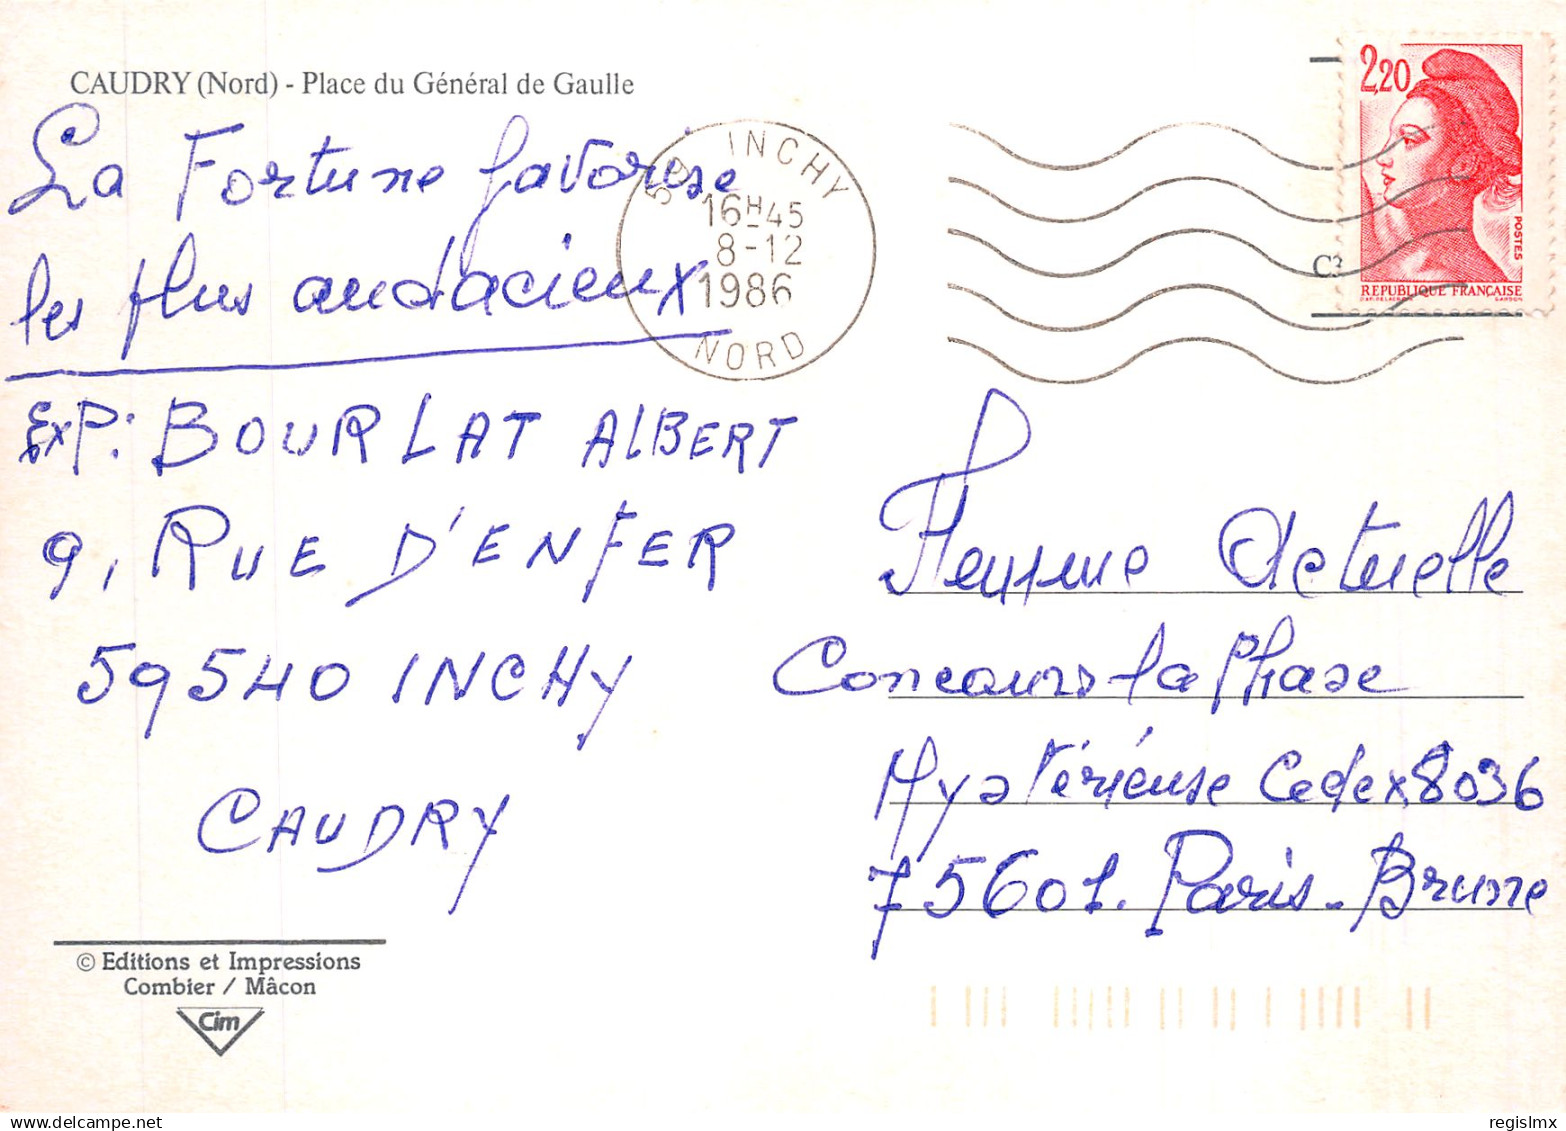 CAUDRY (Nord) - Place du Général de Gaulle
La Fortune favorise
les plus audacieux
Exp: BOURLAT ALBERT
9, RUE D'ENFER
59540 INCHY
CAUDRY
© Editions et Impressions
Combier / Mâcon
Cim
59 INCHY
16H45
8-12
1986
NORD
2,20
POSTES
REPUBLIQUE FRANÇAISE
Femme Actuelle
Concours la Phrase
Mystérieuse Cedex 8036
75601. Paris-Brune
regislmx
© www.delcampe.net